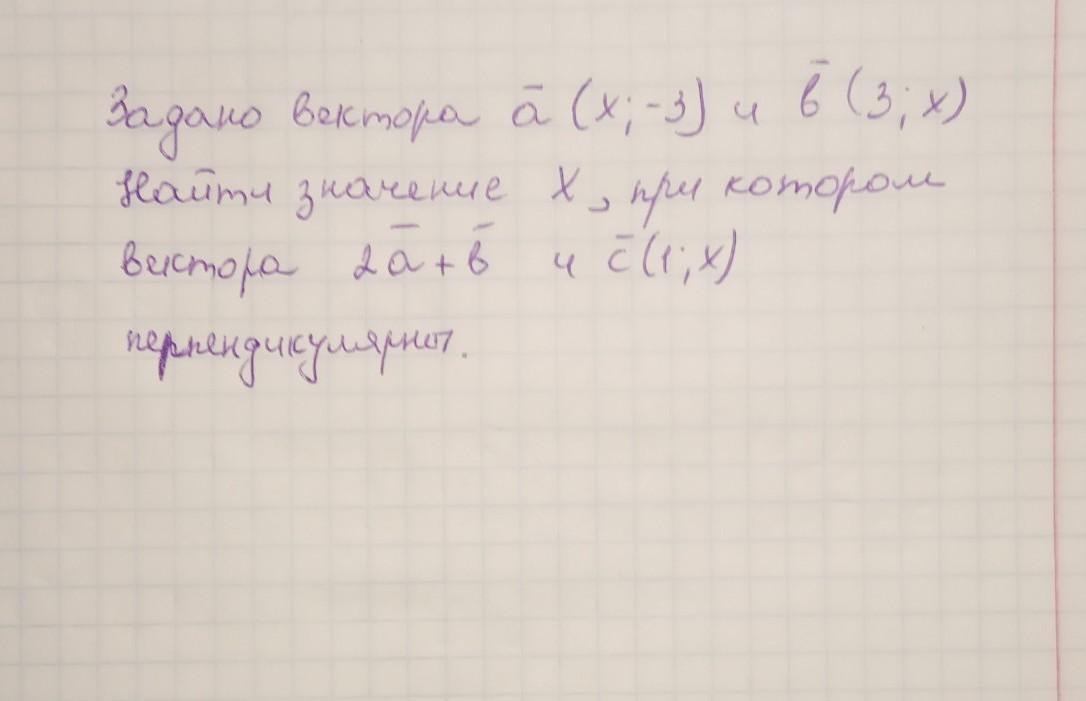 Задано вектора a̅ (x; -3) и b̅ (3; x)
Найти значение x, при котором
вектора 2a̅ + b̅ и c̅ (1; x)
перпендикулярны.